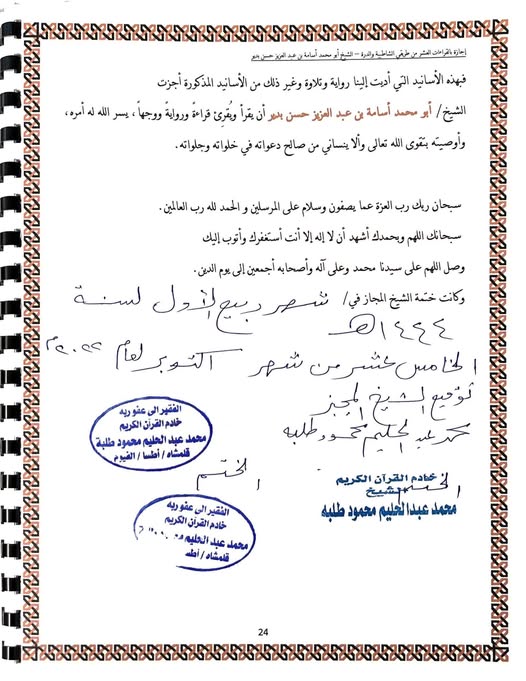 إجازة بالقراءات العشر من طريقي الشاطبية والدرة – الشيخ أبو محمد أسامة بن عبد العزيز حسن بدير
فبهذه الأسانيد التي أديت إلينا رواية وتلاوة وغير ذلك من الأسانيد المذكورة أجزت
الشيخ/ أبو محمد أسامة بن عبد العزيز حسن بدير أن يقرأ ويُقرئ قراءةً وروايةً ووجهاً، يسر الله له أمره،
وأوصيته بتقوى الله تعالى وألا ينساني من صالح دعواته في خلواته وجلواته.
سبحان ربك رب العزة عما يصفون وسلام على المرسلين و الحمد لله رب العالمين.
سبحانك اللهم وبحمدك أشهد أن لا إله إلا أنت أستغفرك وأتوب إليك
وصل اللهم على سيدنا محمد وعلى آله وأصحابه أجمعين إلى يوم الدين.
وكانت ختمة الشيخ المجاز في/ شهر ربيع الأول لسنة
١٤٤٤هـ
الخامس عشر من شهر أكتوبر لعام ٢٠٢٢م
توقيع الشيخ المجيز
محمد عبد الحليم محمود طلبه
الفقير الى عفو ربه
خادم القرآن الكريم
محمد عبد الحليم محمود طلبة
قلمشاه / أطسا / الفيوم
الختم
الختم
خادم القرآن الكريم
الشيخ
محمد عبدالحليم محمود طلبه
الفقير الى عفو ربه
خادم القرآن الكريم
محمد عبد الحليم
قلمشاه / أطس
24